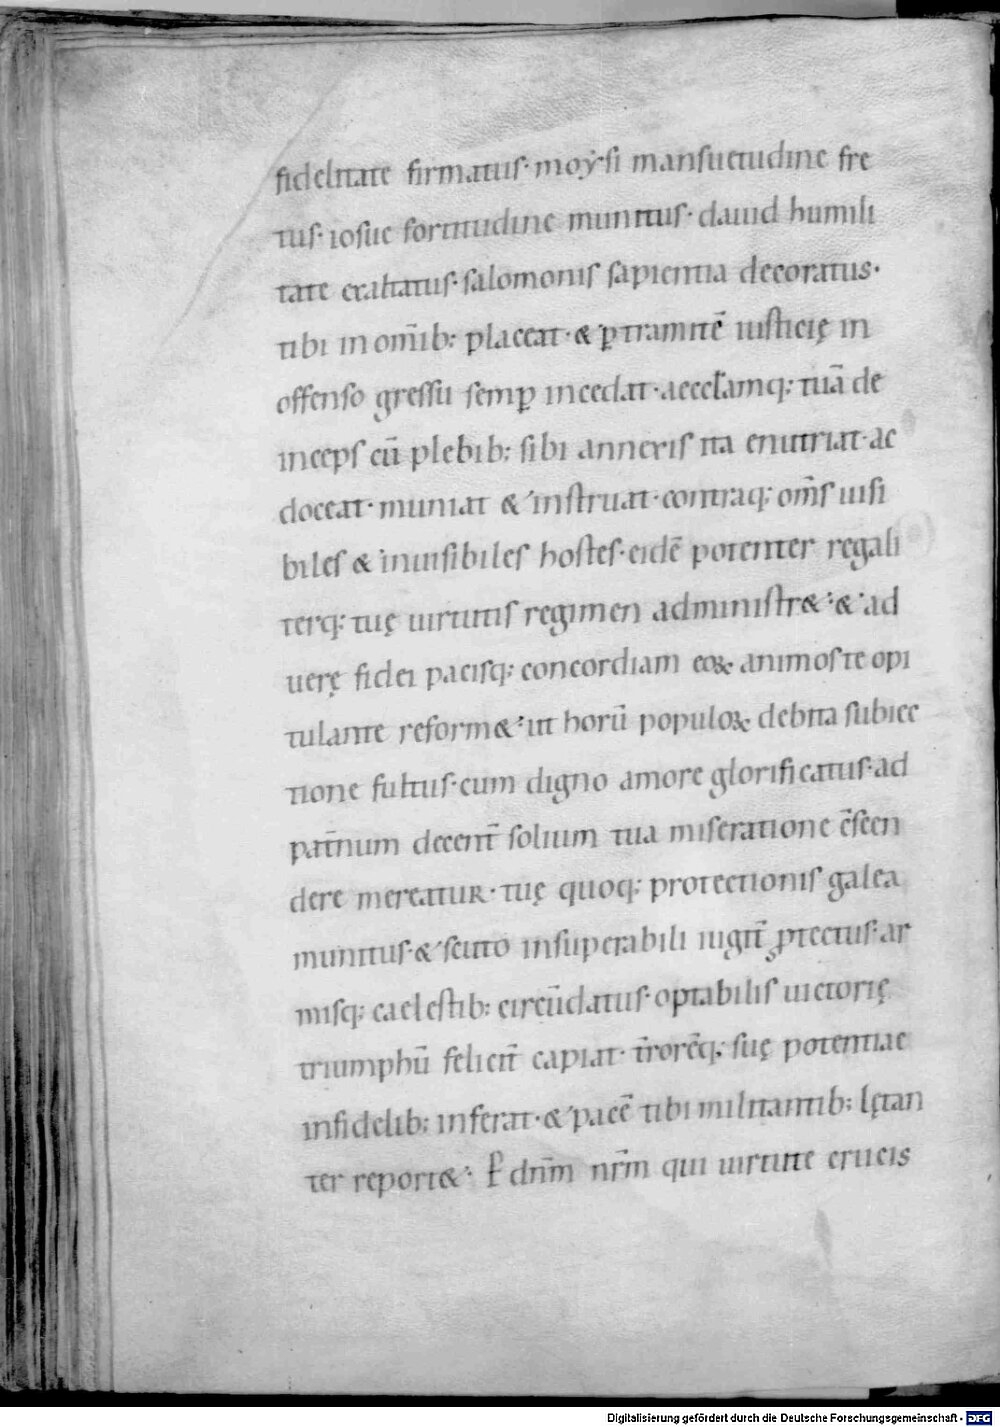 fidelitate firmatus· moẏsi mansuetudine fre
tus· iosue fortitudine munitus· dauid humili
tate exaltatus· salomonis sapientia decoratus·
tibi in om̄ib; placeat· & ꝑ tramitē iusticię in
offenso gressu semꝑ incedat· aeccl̄amq; tuā de
inceps cū plebib; sibi annexis ita enutriat· ac
doceat· muniat & instruat· contraq; om̄s uisi
biles & inuisibiles hostes· eidē potenter regali
terq; tuę uirtutis regimen administr&· & ad
uerę fidei pacisq; concordiam eoꝝ animos te opi
tulante reform&· ut horū populoꝝ debita subiec
tione fultus· cum digno amore glorificatus· ad
pat̄num decent̄ solium tua miseratione c̄scen
dere mereatur· tuę quoq; protectionis galea
munitus· & scuto insuperabili iugit̄ ꝓtectus· ar
misq; caelestib; circūdatus· optabilis uictorię
triumphū felicit̄ capiat· t̄rorēq; suę potentiae
infidelib; inferat· & pacē tibi militantib; lętan
ter report&· P̄ dn̄m nr̄m qui uirtute crucis
Digitalisierung gefördert durch die Deutsche Forschungsgemeinschaft - DFG